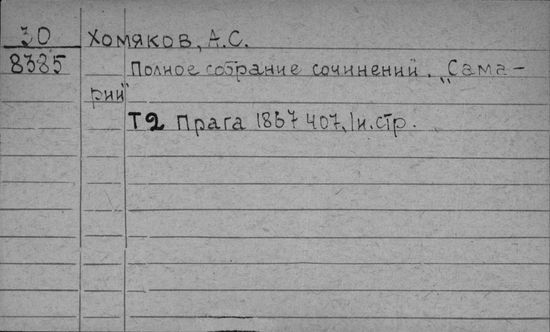 30 Хомяков, А.С.
8385 Полное собрание сочинений. „Сама-
рии"
Т2 Прага 1867 407, 1н. стр.